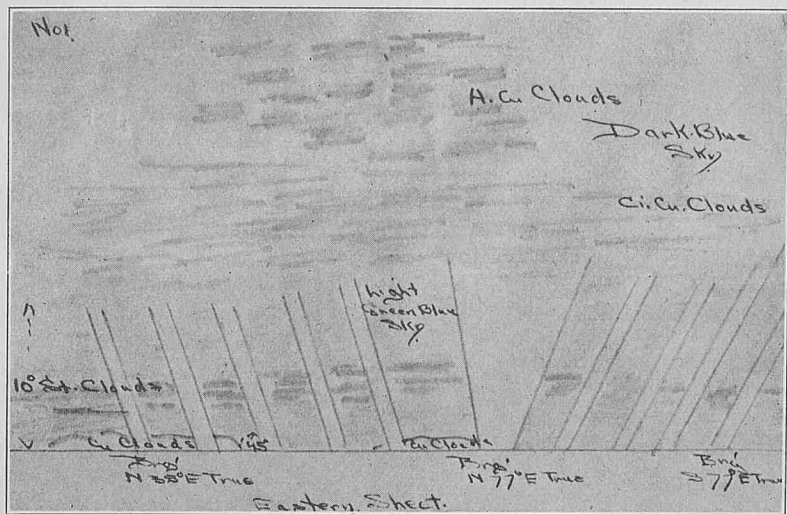 No1.
A. Cu Clouds
Dark. Blue
Sky
Ci. Cu. Clouds
Light
Green Blue
Sky
10° St. Clouds
Cu Clouds
45°
Cu Clouds
Brg
N 38° E True
Brg
N 77° E True
Brg
S 77° E True
Eastern. Sheet.